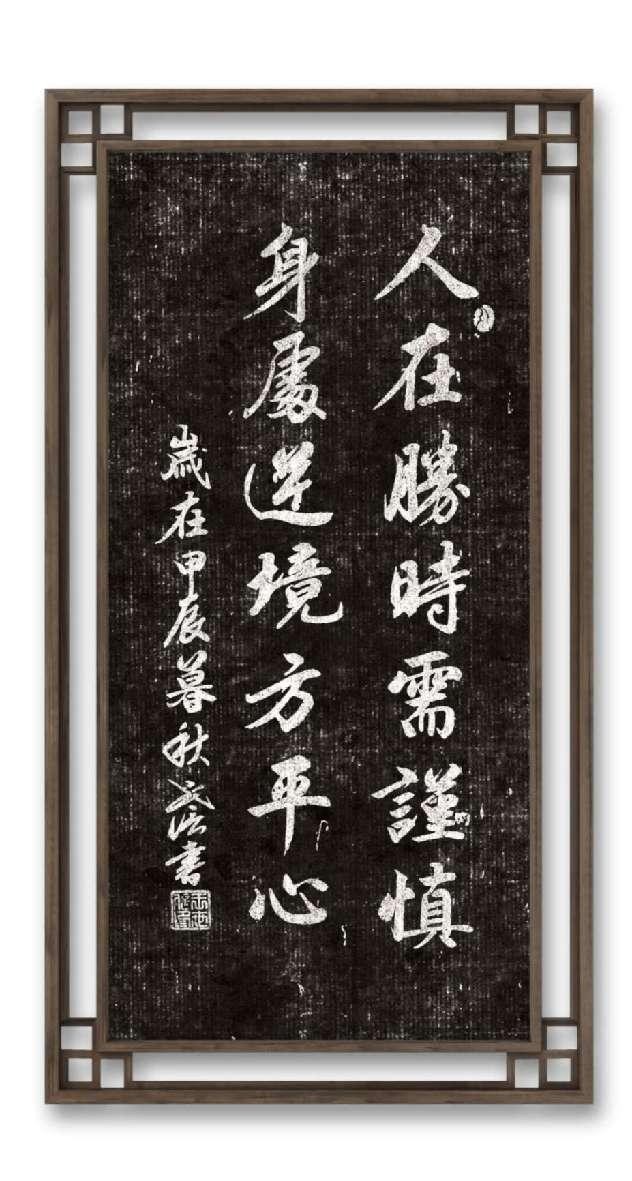 人在勝時需謹慎
身處逆境方平心
歲在甲辰暮秋
書